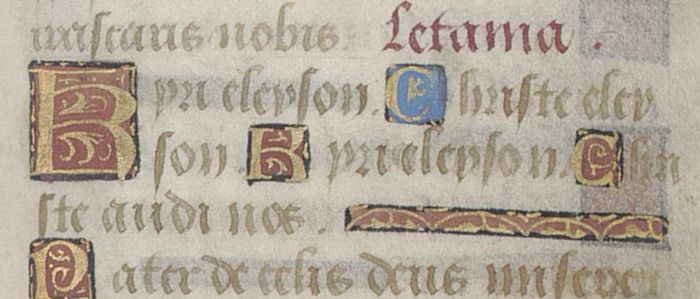 irascaris nobis. Letania.
Kyri eleyson. Christe eley
son. Kyri eleyson. Chri
ste audi nos.
Pater de celis deus miserer